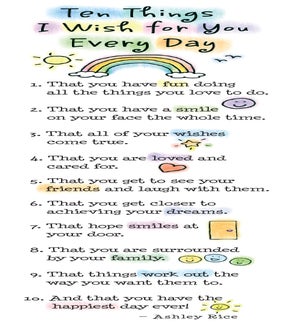 Ten Things
I Wish for You
Every Day
1. That you have fun doing
all the things you love to do.
2. That you have a smile
on your face the whole time.
3. That all of your wishes
come true.
4. That you are loved and
cared for.
5. That you get to see your
friends and laugh with them.
6. That you get closer to
achieving your dreams.
7. That hope smiles at
your door.
8. That you are surrounded
by your family.
9. That things work out the
way you want them to.
10. And that you have the
happiest day ever!
– Ashley Rice